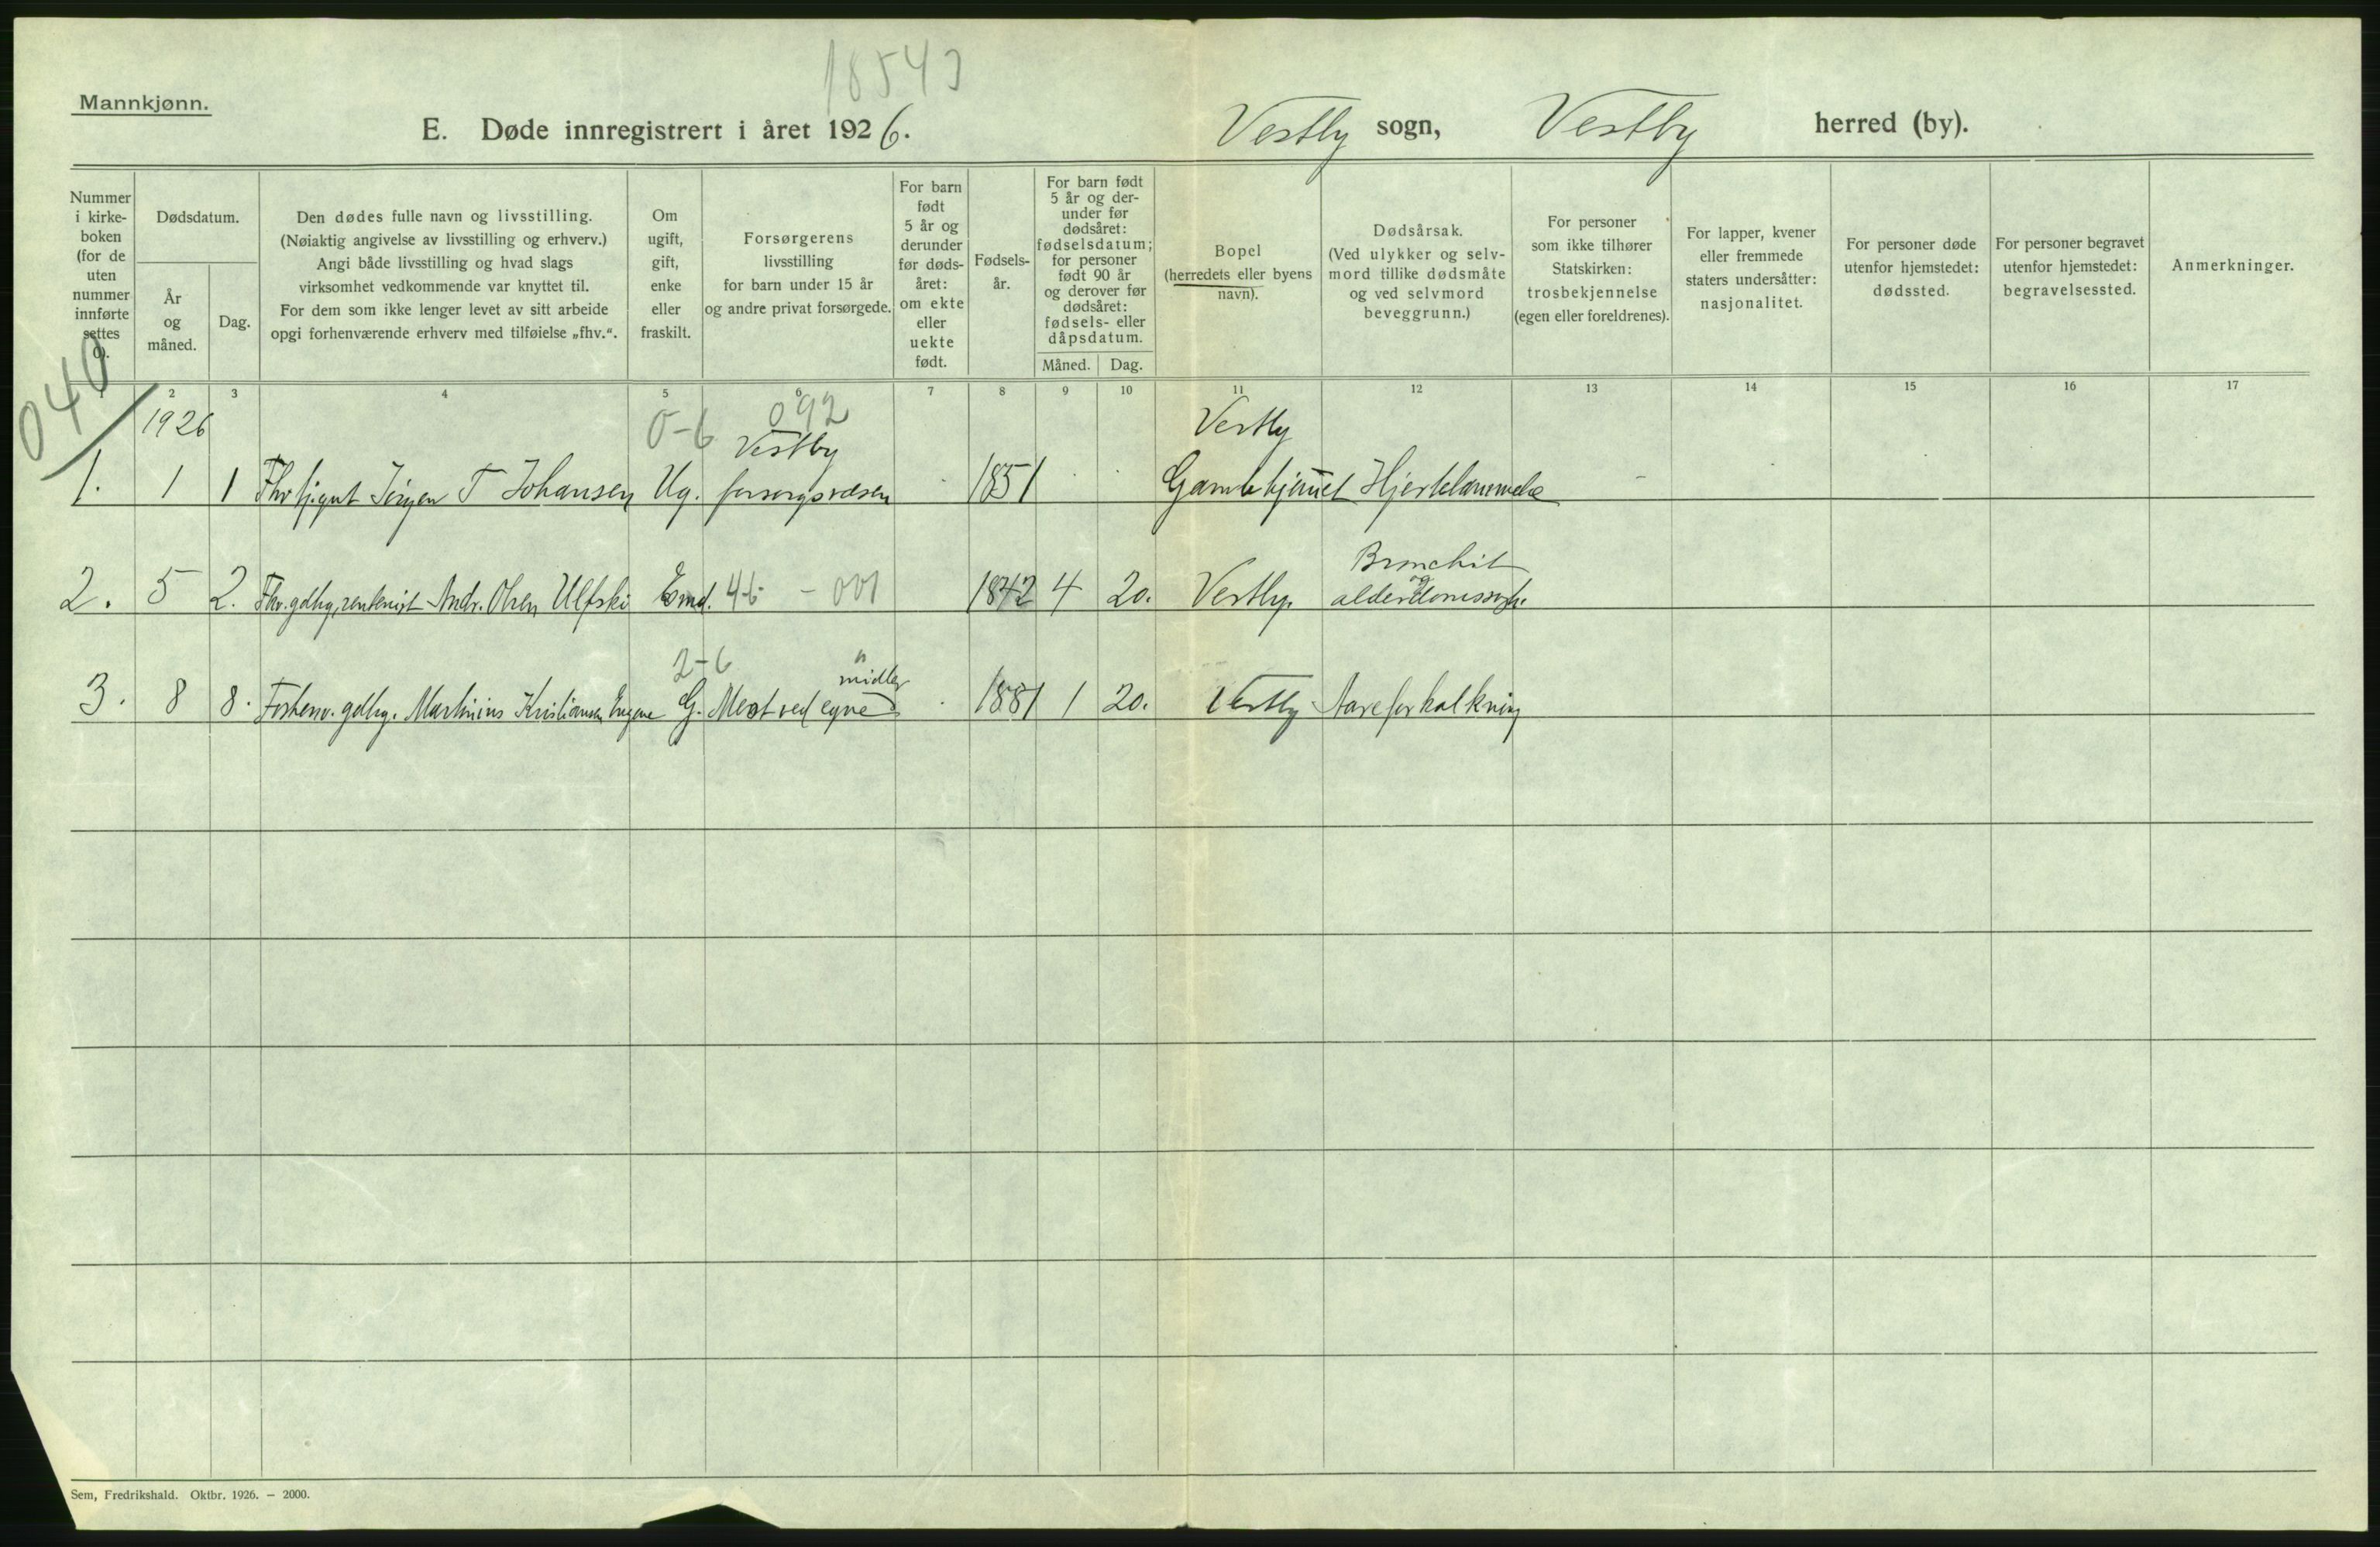 18543
Mannkjønn.
E. Døde innregistrert i året 1926.
Vestby sogn, Vestby herred (by).
Nummer
i kirke-
boken
(for de
uten
nummer
innførte
settes
0).
Dødsdatum.
År
og
måned.
Dag.
Den dødes fulle navn og livsstilling.
(Nøiaktig angivelse av livsstilling og erhverv.)
Angi både livsstilling og hvad slags
virksomhet vedkommende var knyttet til.
For dem som ikke lenger levet av sitt arbeide
opgi forhenværende erhverv med tilføielse „fhv.“.
Om
ugift,
gift,
enke
eller
fraskilt.
Forsørgerens
livsstilling
for barn under 15 år
og andre privat forsørgede.
For barn
født
5 år og
derunder
før døds-
året:
om ekte
eller
uekte
født.
Fødsels-
år.
For barn født
5 år og der-
under før
dødsåret:
fødselsdatum;
for personer
født 90 år
og derover før
dødsåret:
fødsels- eller
dåpsdatum.
Måned. Dag.
Bopel
(herredets eller byens
navn).
Dødsårsak.
(Ved ulykker og selv-
mord tillike dødsmåte
og ved selvmord
beveggrunn.)
For personer
som ikke tilhører
Statskirken:
trosbekjennelse
(egen eller foreldrenes).
For lapper, kvener
eller fremmede
staters undersåtter:
nasjonalitet.
For personer døde
utenfor hjemstedet:
dødssted.
For personer begravet
utenfor hjemstedet:
begravelsessted.
Anmerkninger.
1 2 3 4 5 6 7 8 9 10 11 12 13 14 15 16 17
040
1926 0-6 092 Vestby
Vestby
1. 1 1 Fhv Jørgen T Johansen Ug. forsorgsvæsen 1851 Gamlehjemet Hjertelammelse
Bronchit
og
2. 5 2. Fhv. gdbr, rentenist Andr. Olsen Ulfski Emd. 46 - 001 1842 4 20. Vestby. alderdomssvgh.
2-6 midler
3. 8 8. Forhenv. gdbr. Martinius Kristiansen G. Mest ved egne 1881 1 20. Vestby Aareforkalkning
Sem, Fredrikshald. Oktbr. 1926. — 2000.